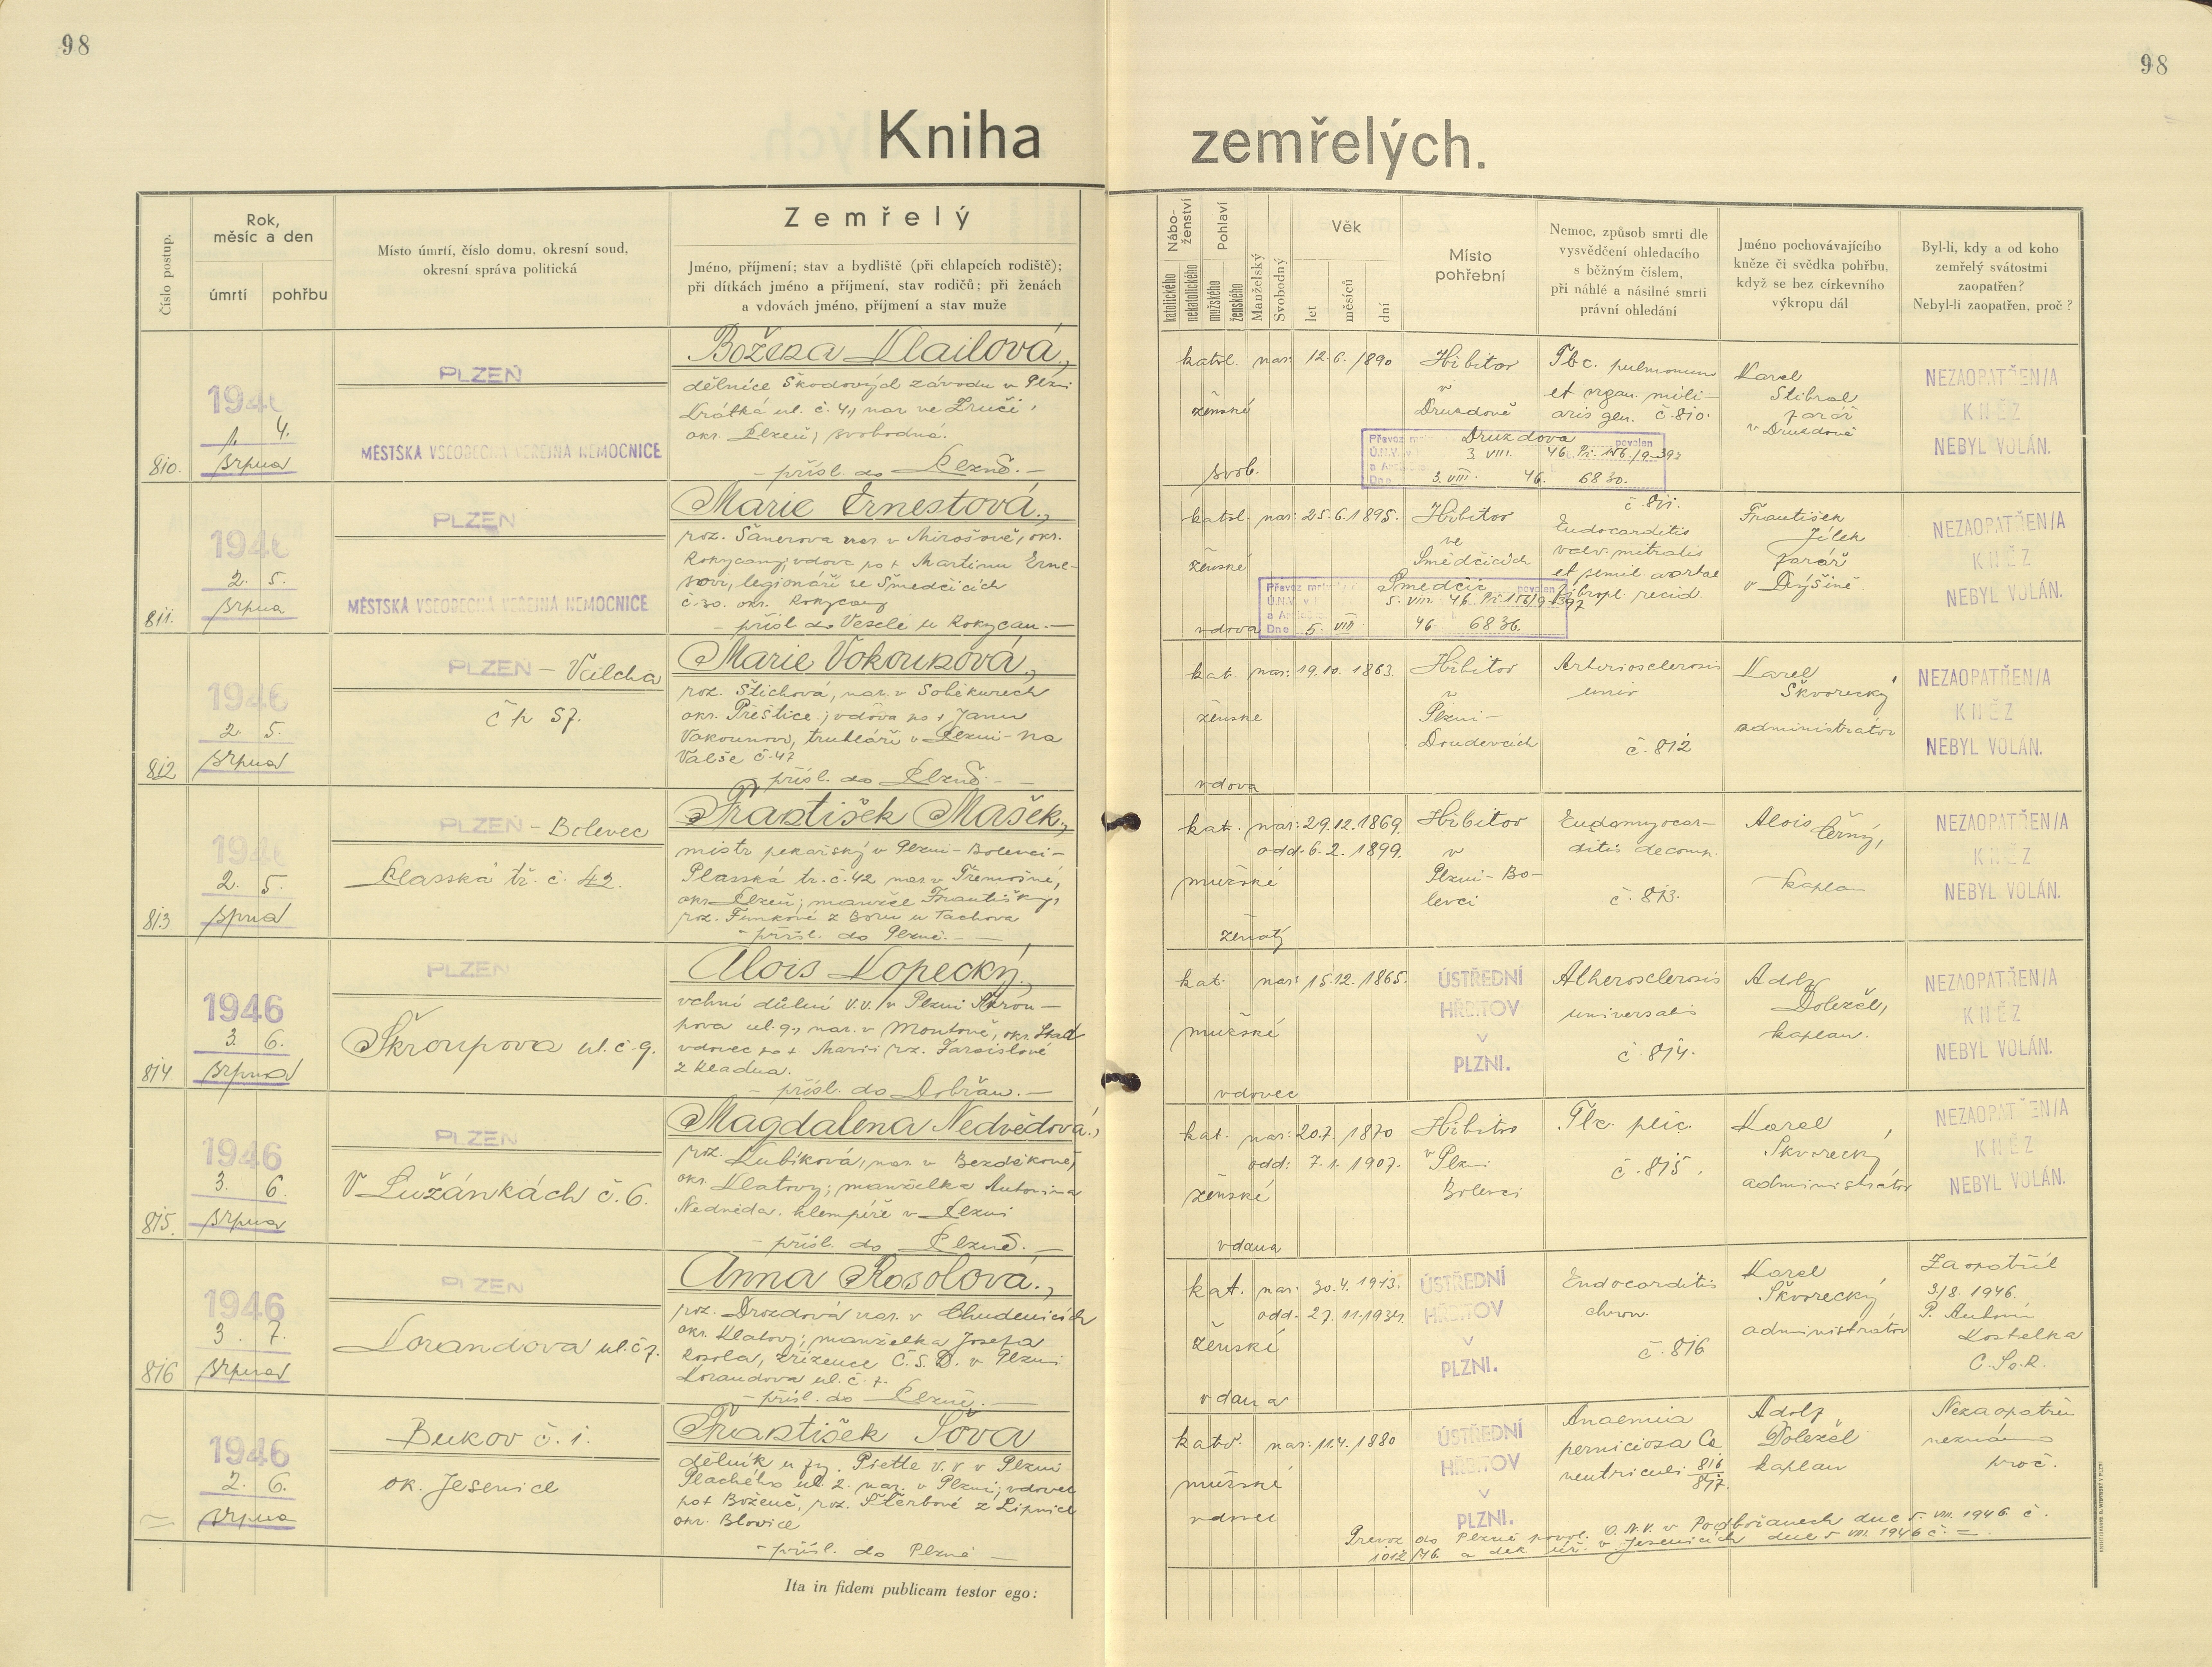 98
98
Kniha zemřelých.
Číslo postup.
Rok, měsíc a den
úmrtí
pohřbu
Místo úmrtí, číslo domu, okresní soud,
okresní správa politická
Zemřelý
Jméno, příjmení; stav a bydliště (při chlapcích rodiště);
při dítkách jméno a příjmení, stav rodičů; při ženách
a vdovách jméno, příjmení a stav muže
Nábo-
ženství
katolického
nekatolického
Pohlaví
mužského
ženského
Manželský
Svobodný
Věk
let
měsíců
dní
Místo
pohřební
Nemoc, způsob smrti dle
vysvědčení ohledacího
s běžným číslem,
při náhlé a násilné smrti
právní ohledání
Jméno pochovávajícího
kněze či svědka pohřbu,
když se bez církevního
výkropu dál
Byl-li, kdy a od koho
zemřelý svátostmi
zaopatřen?
Nebyl-li zaopatřen, proč?
810.
1946
1. 4.
srpna
PLZEŇ
MĚSTSKÁ VŠEOBECNÁ VEŘEJNÁ NEMOCNICE
Božena Klailová,
dělnice Škodových závodů v Plzni
Krátká ul. č. 4., nar. ve Zruči,
okr. Plzeň; svobodná.
– přísl. do Plzně. –
katol. nar: 12. 6. 1890
ženské
svob.
Hřbitov
v
Druzdově
Tbc. pulmonum
et organ. mili-
aris gen. č. 810.
Karel
Stibral
farář
v Druzdově
NEZAOPATŘEN/A
KNĚZ
NEBYL VOLÁN.
Druzdova
povolen
3. VIII. 46.
3. VIII. 46. 6830.
811.
1946
2. 5.
srpna
PLZEŇ
MĚSTSKÁ VŠEOBECNÁ VEŘEJNÁ NEMOCNICE
Marie Ernestová,
roz. Šanerova nar. v Mirošově, okr.
Rokycany; vdova po + Martinu Erne-
stovi, legionáři ve Smedčicích
č. 30. okr. Rokycany
– přísl. do Veselé u Rokycan. –
katol. nar: 25. 6. 1895.
ženské
vdova
Hřbitov
ve
Smědčicích
č. 811.
Endocarditis
valv. mitralis
et semil. aortae
fibropl. recid.
František
Jílek
farář
v Dýšině.
NEZAOPATŘEN/A
KNĚZ
NEBYL VOLÁN.
Smedčic
povolen
5. VIII. 46.
Dne 5. VIII. 46 6836.
812
1946
2. 5.
srpna
PLZEŇ – Valcha
č p 57.
Marie Vokounová,
roz. Štichová, nar. v Soběkurech
okr. Přeštice; vdova po + Janu
Vokounovi, truhláři v Plzni – na
Valše č. 47
– přísl. do Plzně. –
kat. nar: 19. 10. 1863.
ženské
vdova
Hřbitov
v
Plzni –
Doudevcích
Arteriosclerosis
univ
č. 812
Karel
Škvorecký
administrátor
NEZAOPATŘEN/A
KNĚZ
NEBYL VOLÁN.
813
1946
2. 5.
srpna
PLZEŇ – Bolevec
Plasská tř. č. 42.
František Mašek,
mistr pekařský v Plzni – Bolevci –
Plasská tr. č. 42 nar. v Třemošné,
okr. Plzeň; manžel Františky,
roz. Funkové z Boru u Tachova
– přísl. do Plzně. –
kat. nar: 29. 12. 1869.
odd. 6. 2. 1899.
mužské
ženatý
Hřbitov
v
Plzni – Bo-
levci
Endomyocar-
ditis decomp.
č. 813.
Alois Černý,
kaplan
NEZAOPATŘEN/A
KNĚZ
NEBYL VOLÁN.
814
1946
3. 6.
srpna
PLZEŇ
Škroupova ul. č. 9.
Alois Kopecký,
vrchní důlní v.v. v Plzni Škrou-
pova ul. 9., nar. v
vdovec po + Marii roz.
z Kladna.
– přísl. do Dobřan. –
kat. nar: 15. 12. 1865.
mužské
vdovec
ÚSTŘEDNÍ
HŘBITOV
V
PLZNI.
Atherosclerosis
universalis
č. 814.
Adolf
Doležel,
kaplan.
NEZAOPATŘEN/A
KNĚZ
NEBYL VOLÁN.
815.
1946
3. 6.
srpna
PLZEŇ
V Lužánkách č. 6.
Magdalena Nedvědová,
roz. Kubíková, nar. v Bezděkově,
okr. Klatovy; manželka Antonína
Nedvěda. klempíře v Plzni
– přísl. do Plzně. –
kat. nar: 20. 7. 1870
odd: 7. 1. 1907.
ženské
vdaná
Hřbitov
v Plzni
Bolevci
Tbc. plic.
č. 815.
Karel
Škvorecký
administrátor
NEZAOPATŘEN/A
KNĚZ
NEBYL VOLÁN.
816
1946
3. 7.
srpna
PLZEŇ
Korandova ul. č 7.
Anna Rosolová,
roz. Drozdová nar. v Chudenicích
okr. Klatovy; manželka Josefa
Rosola, zřízence Č.S.D. v Plzni
Korandova ul. č. 7.
– přísl. do Plzně. –
kat. nar: 30. 4. 1913.
odd. 27. 11. 1934.
ženské
vdaná
ÚSTŘEDNÍ
HŘBITOV
V
PLZNI.
Endocarditis
chron.
č. 816
Karel
Škvorecký
administrátor
Zaopatřil
3/8. 1946.
P. Antonín
Kostelka
C.Ss.R.
1946
2. 6.
srpna
Bukov č. 1.
ok. Jesenice
František Sova
dělník u fy. Piette v. v. v Plzni
Plachého ul. 2. nar. v Plzni; vdovec
po + Boženě, roz. Štěrbové z Lipnice
okr. Blovice
– přísl. do Plzně –
katol. nar: 11. 4. 1880
mužské
vdovec
ÚSTŘEDNÍ
HŘBITOV
V
PLZNI.
Anaemia
perniciosa Ca
ventriculi 816
817
Adolf
Doležel
kaplan
Nezaopatřen
neznámo
proč.
Prevoz do Plzně povol. O.N.V. v Podbořanech dne 5. VIII. 1946 č.
1012/46. a dek. úř. v Jesenicích dne 5 VIII. 1946 č. =.
Ita in fidem publicam testor ego: